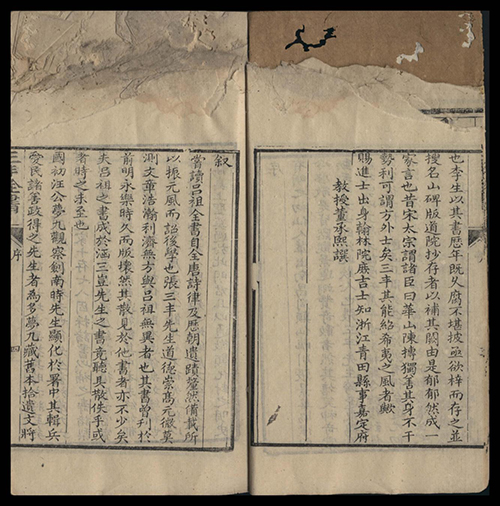 也李生以其書歷年既久腐不堪披亟欲梓而存之並
搜名山碑版道院抄存者以補其闕由是郁郁然成一
家言也昔宋太宗謂諸臣曰華山陳摶獨善其身不干
勢利可謂方外士矣三丰其能紹希夷之風者歟
賜進士出身翰林院庶吉士知浙江青田縣事嘉定府
教授董承熙譔
叙
嘗讀呂祖全書自全唐詩律及歷朝遺蹟釐然備載所
以振元風而詔後學也張三丰先生道德崇高元微莫
測文章浩瀚利濟無方與呂祖無異者也其書曾刊於
前明永樂時久而版壞然其散見於他書者亦不少矣
夫呂祖之書成於涵三豈先生之書竟聽其散佚乎或
者時之未至也
國初汪公夢九觀察劍南時先生顯化於署中其輯兵
愛民諸善政得之先生者為多夢九藏舊本拾遺文將
三丰全書 序 四